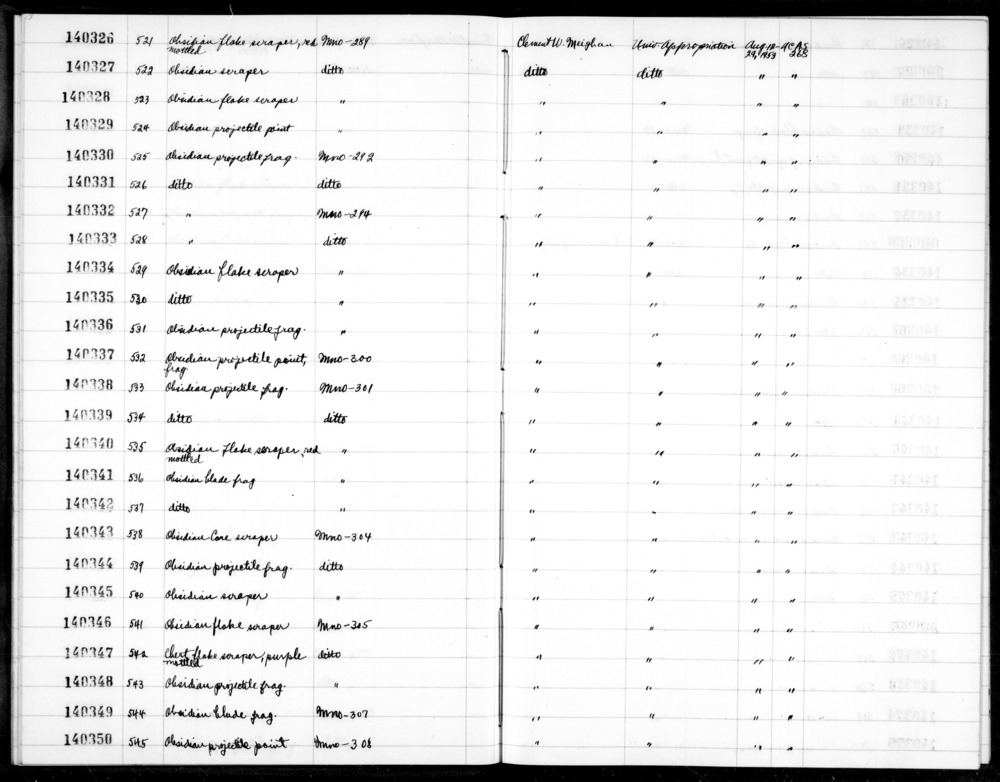 140326 521 Obsidian flake scraper, red Mno-289 Clement W. Meighan Univ. Appropriation Aug. 12- Ac.
mottled 29, 1953 268
140327 522 Obsidian scraper ditto ditto ditto " "
140328 523 Obsidian flake scraper " " " " "
140329 524 Obsidian projectile point " " " " "
140330 525 Obsidian projectile frag. Mno-292 " " " "
140331 526 ditto ditto " " " "
140332 527 " Mno-294 " " " "
140333 528 " ditto " " " "
140334 529 Obsidian flake scraper " " " " "
140335 530 ditto " " " " "
140336 531 Obsidian projectile frag. " " " " "
140337 532 Obsidian projectile point, Mno-300 " " " "
frag.
140338 533 Obsidian projectile frag. Mno-301 " " " "
140339 534 ditto ditto " " " "
140340 535 Obsidian flake scraper, red " " " " "
mottled
140341 536 Obsidian blade frag " " " " "
140342 537 ditto " " " " "
140343 538 Obsidian Core scraper Mno-304 " " " "
140344 539 Obsidian projectile frag. ditto " " " "
140345 540 Obsidian scraper " " " " "
140346 541 Obsidian flake scraper Mno-305 " " " "
140347 542 Chert flake scraper, purple ditto " " " "
mottled
140348 543 Obsidian projectile frag. " " " " "
140349 544 Obsidian blade frag. Mno-307 " " " "
140350 545 Obsidian projectile point Mno-308 " " " "